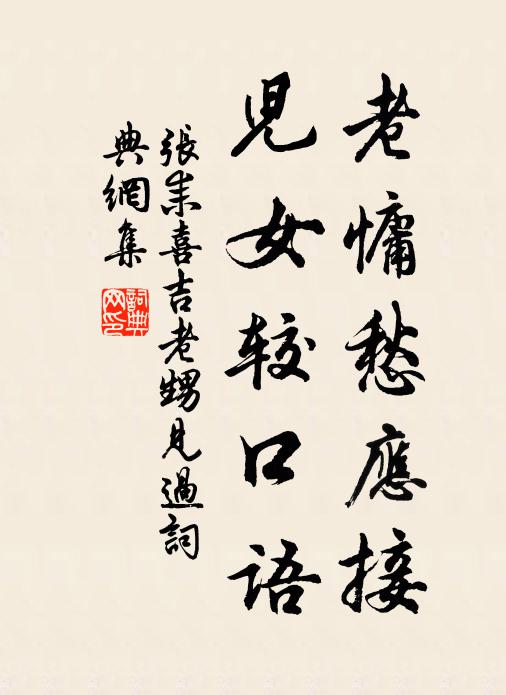 老慵愁應接
兒女较口语
張耒喜吉老甥見過詞
典網集
詞典
网印